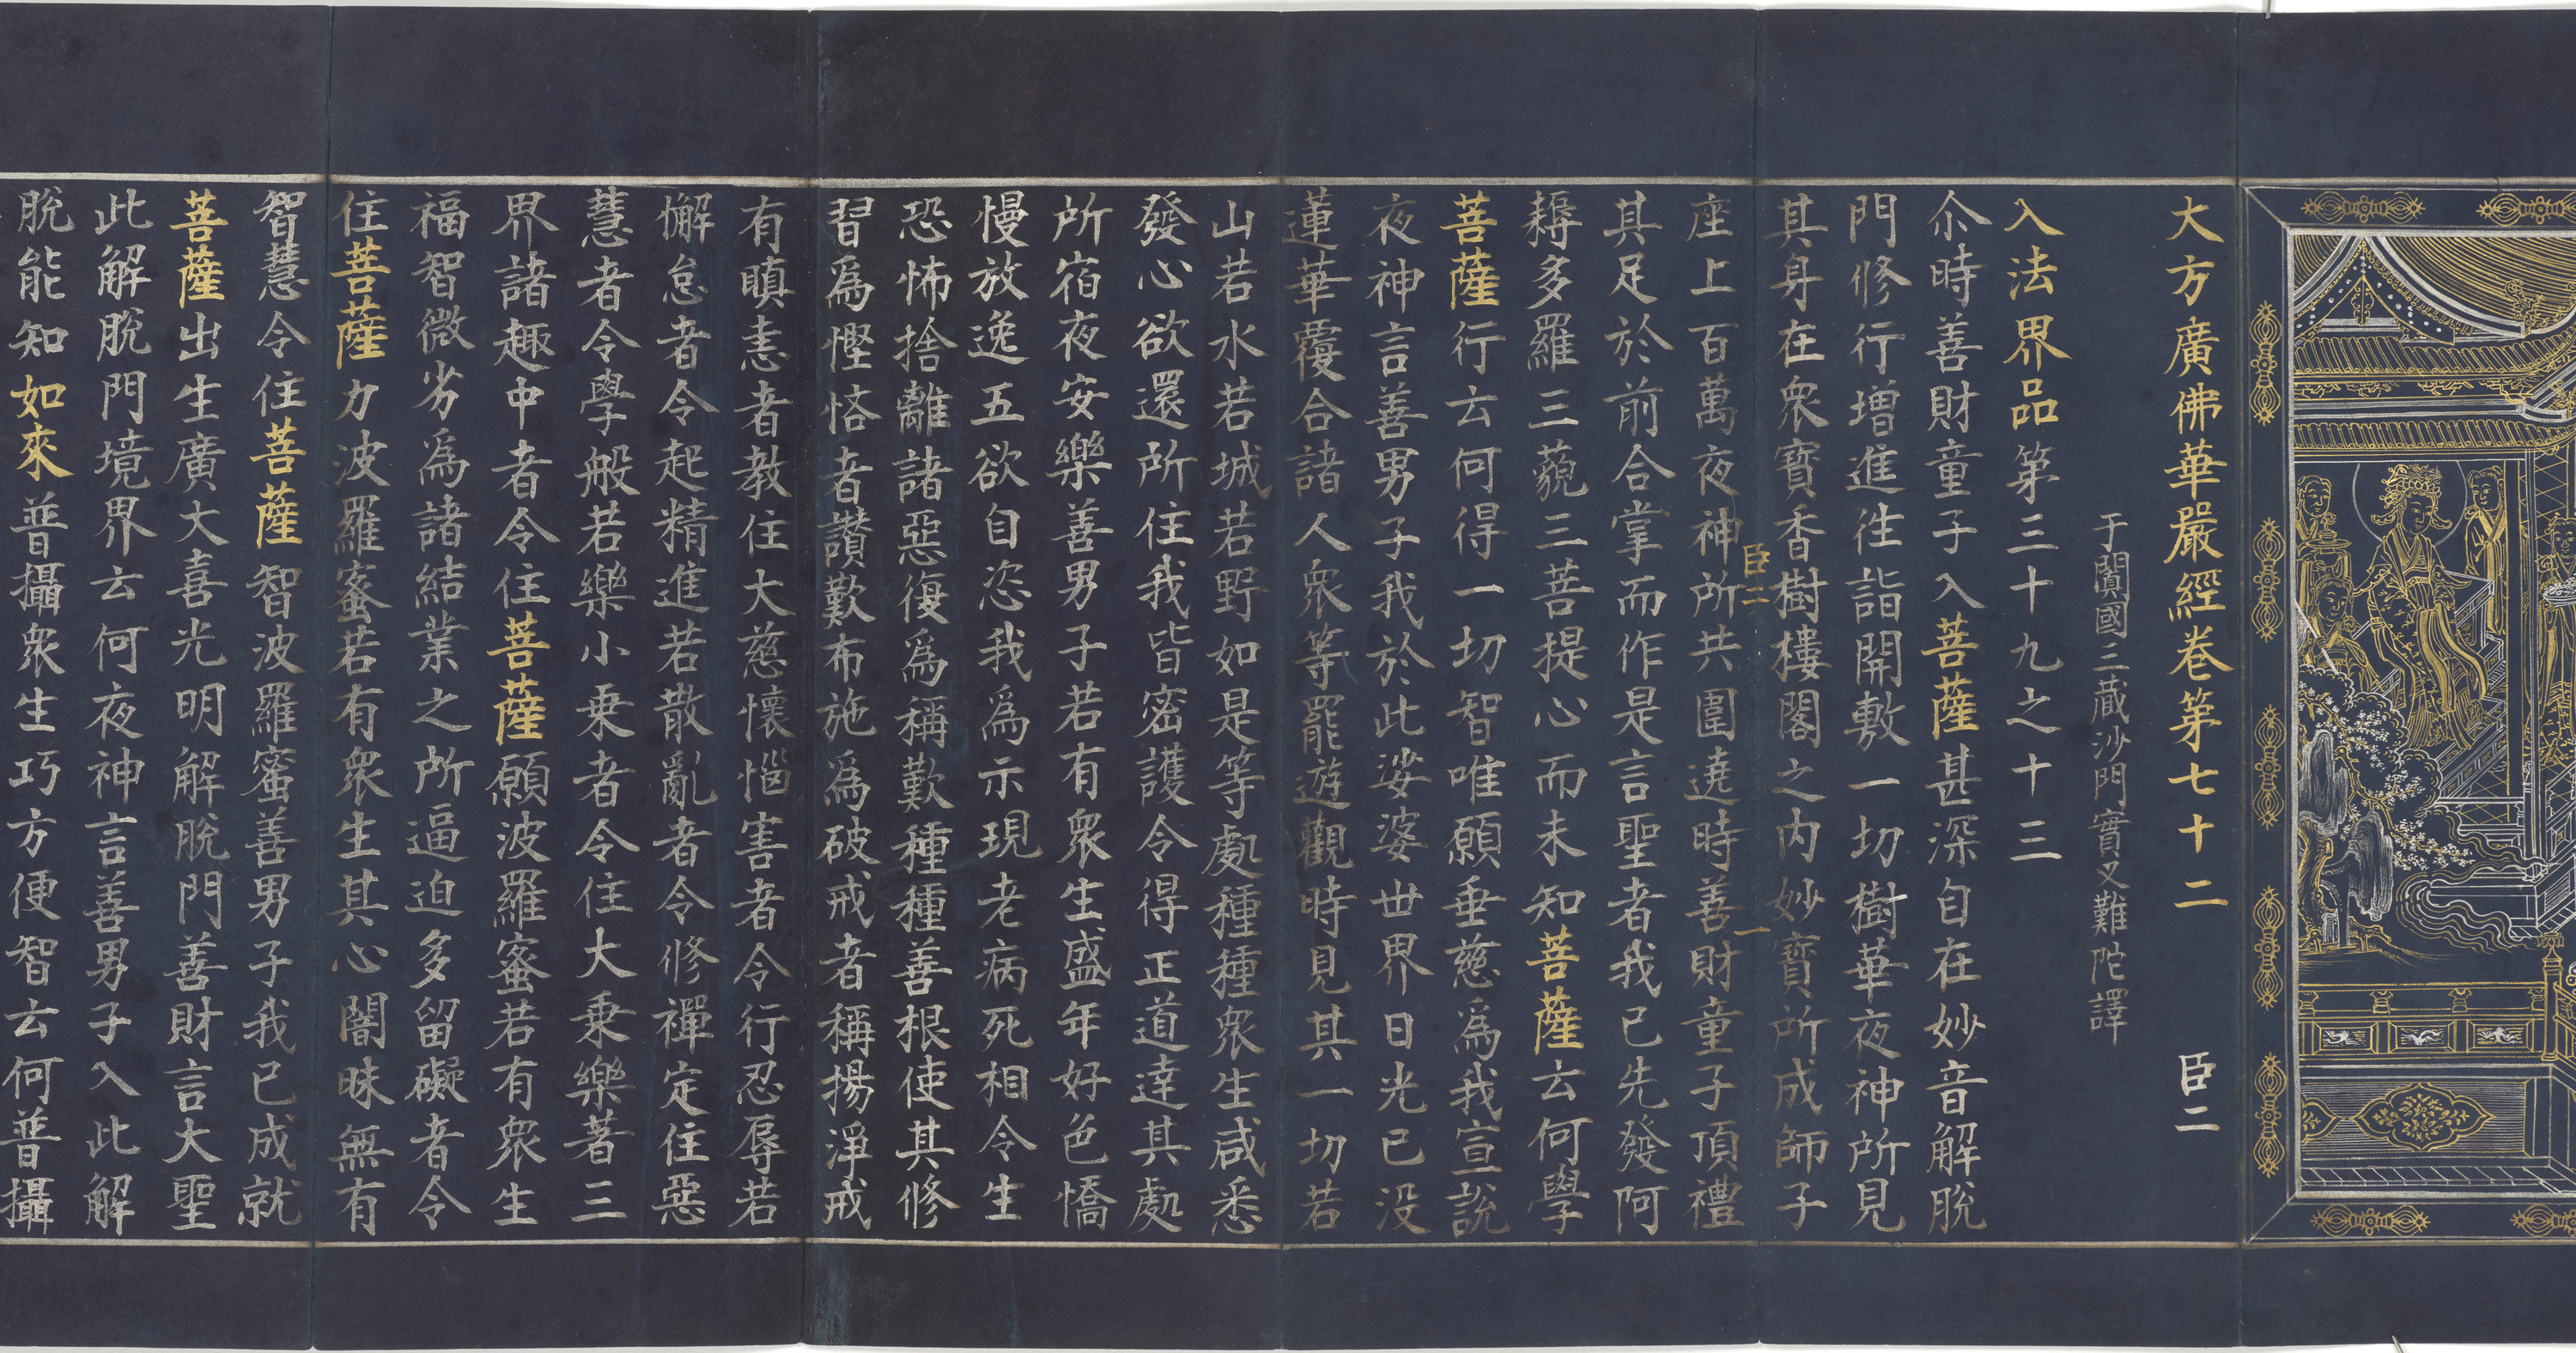 大方廣佛華嚴經卷第七十二　臣二
于闐國三藏沙門實叉難陀譯
入法界品第三十九之十三
尒時善財童子入菩薩甚深自在妙音解脫
門修行增進往詣開敷一切樹華夜神所見
其身在眾寶香樹樓閣之內妙寶所成師子
臣二　一
座上百萬夜神所共圍遶時善財童子頂禮
其足於前合掌而作是言聖者我已先發阿
耨多羅三藐三菩提心而未知菩薩云何學
菩薩行云何得一切智唯願垂慈為我宣說
夜神言善男子我於此娑婆世界日光已沒
蓮華覆合諸人眾等罷遊觀時見其一切若
山若水若城若野如是等處種種眾生咸悉
發心欲還所住我皆密護令得正道達其處
所宿夜安樂善男子若有眾生盛年好色憍
慢放逸五欲自恣我為示現老病死相令生
恐怖捨離諸惡復為稱歎種種善根使其修
習為慳悋者讚歎布施為破戒者稱揚淨戒
有瞋恚者教住大慈懷惱害者令行忍辱若
懈怠者令起精進若散亂者令修禪定住惡
慧者令學般若樂小乘者令住大乘樂著三
界諸趣中者令住菩薩願波羅蜜若有眾生
福智微劣為諸結業之所逼迫多留礙者令
住菩薩力波羅蜜若有眾生其心闇昧無有
智慧令住菩薩智波羅蜜善男子我已成就
菩薩出生廣大喜光明解脫門善財言大聖
此解脫門境界云何夜神言善男子入此解
脫能知如來普攝眾生巧方便智云何普攝